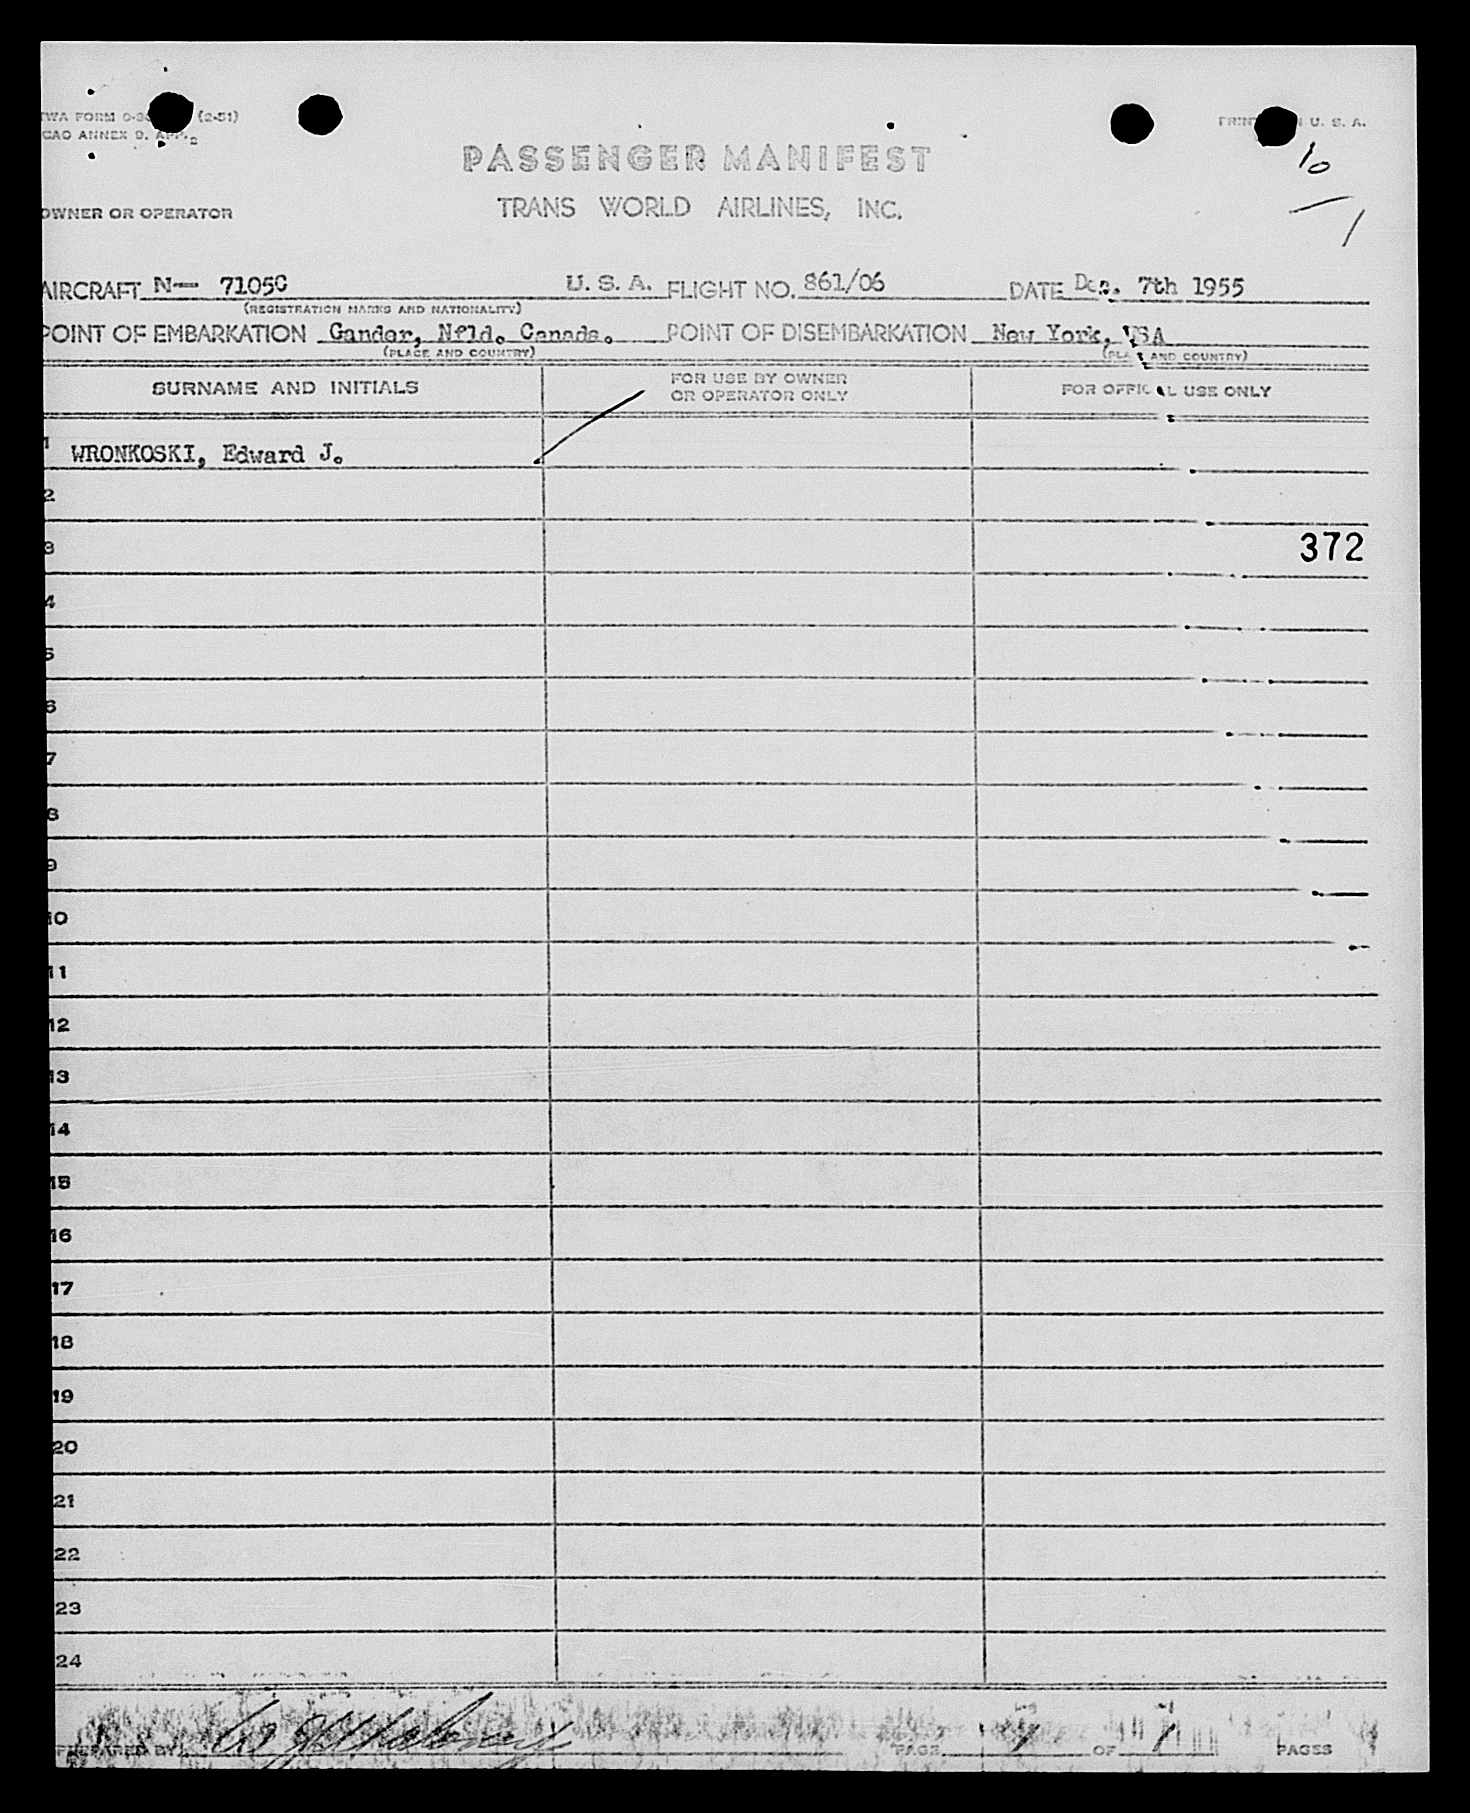 TWA FORM (2-51)
ICAO ANNEX 9. APP. 2
PRINTED IN U. S. A.
10
1
PASSENGER MANIFEST
TRANS WORLD AIRLINES, INC.
OWNER OR OPERATOR
AIRCRAFT N- 7105C U. S. A. FLIGHT NO. 861/06 DATE Dec. 7th 1955
(REGISTRATION MARKS AND NATIONALITY)
POINT OF EMBARKATION Gander, Nfld. Canada. POINT OF DISEMBARKATION New York, USA
(PLACE AND COUNTRY) (PLACE AND COUNTRY)
SURNAME AND INITIALS
FOR USE BY OWNER
OR OPERATOR ONLY
FOR OFFICIAL USE ONLY
1 WRONKOSKI, Edward J.
2
3 372
4
5
6
7
8
9
10
11
12
13
14
15
16
17
18
19
20
21
22
23
24
PREPARED BY PAGE 1 OF 1 PAGES